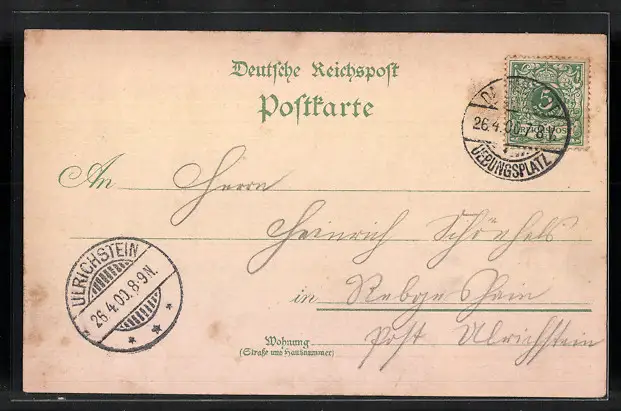 Deutsche Reichspost
Postkarte
5
26.4.00.7-8V.
UEBUNGSPLATZ
An Herrn
Heinrich Schönhals
in Rebgeshain
Wohnung Post Ulrichstein
(Straße und Hausnummer)
ULRICHSTEIN
26.4.00.8-9N.